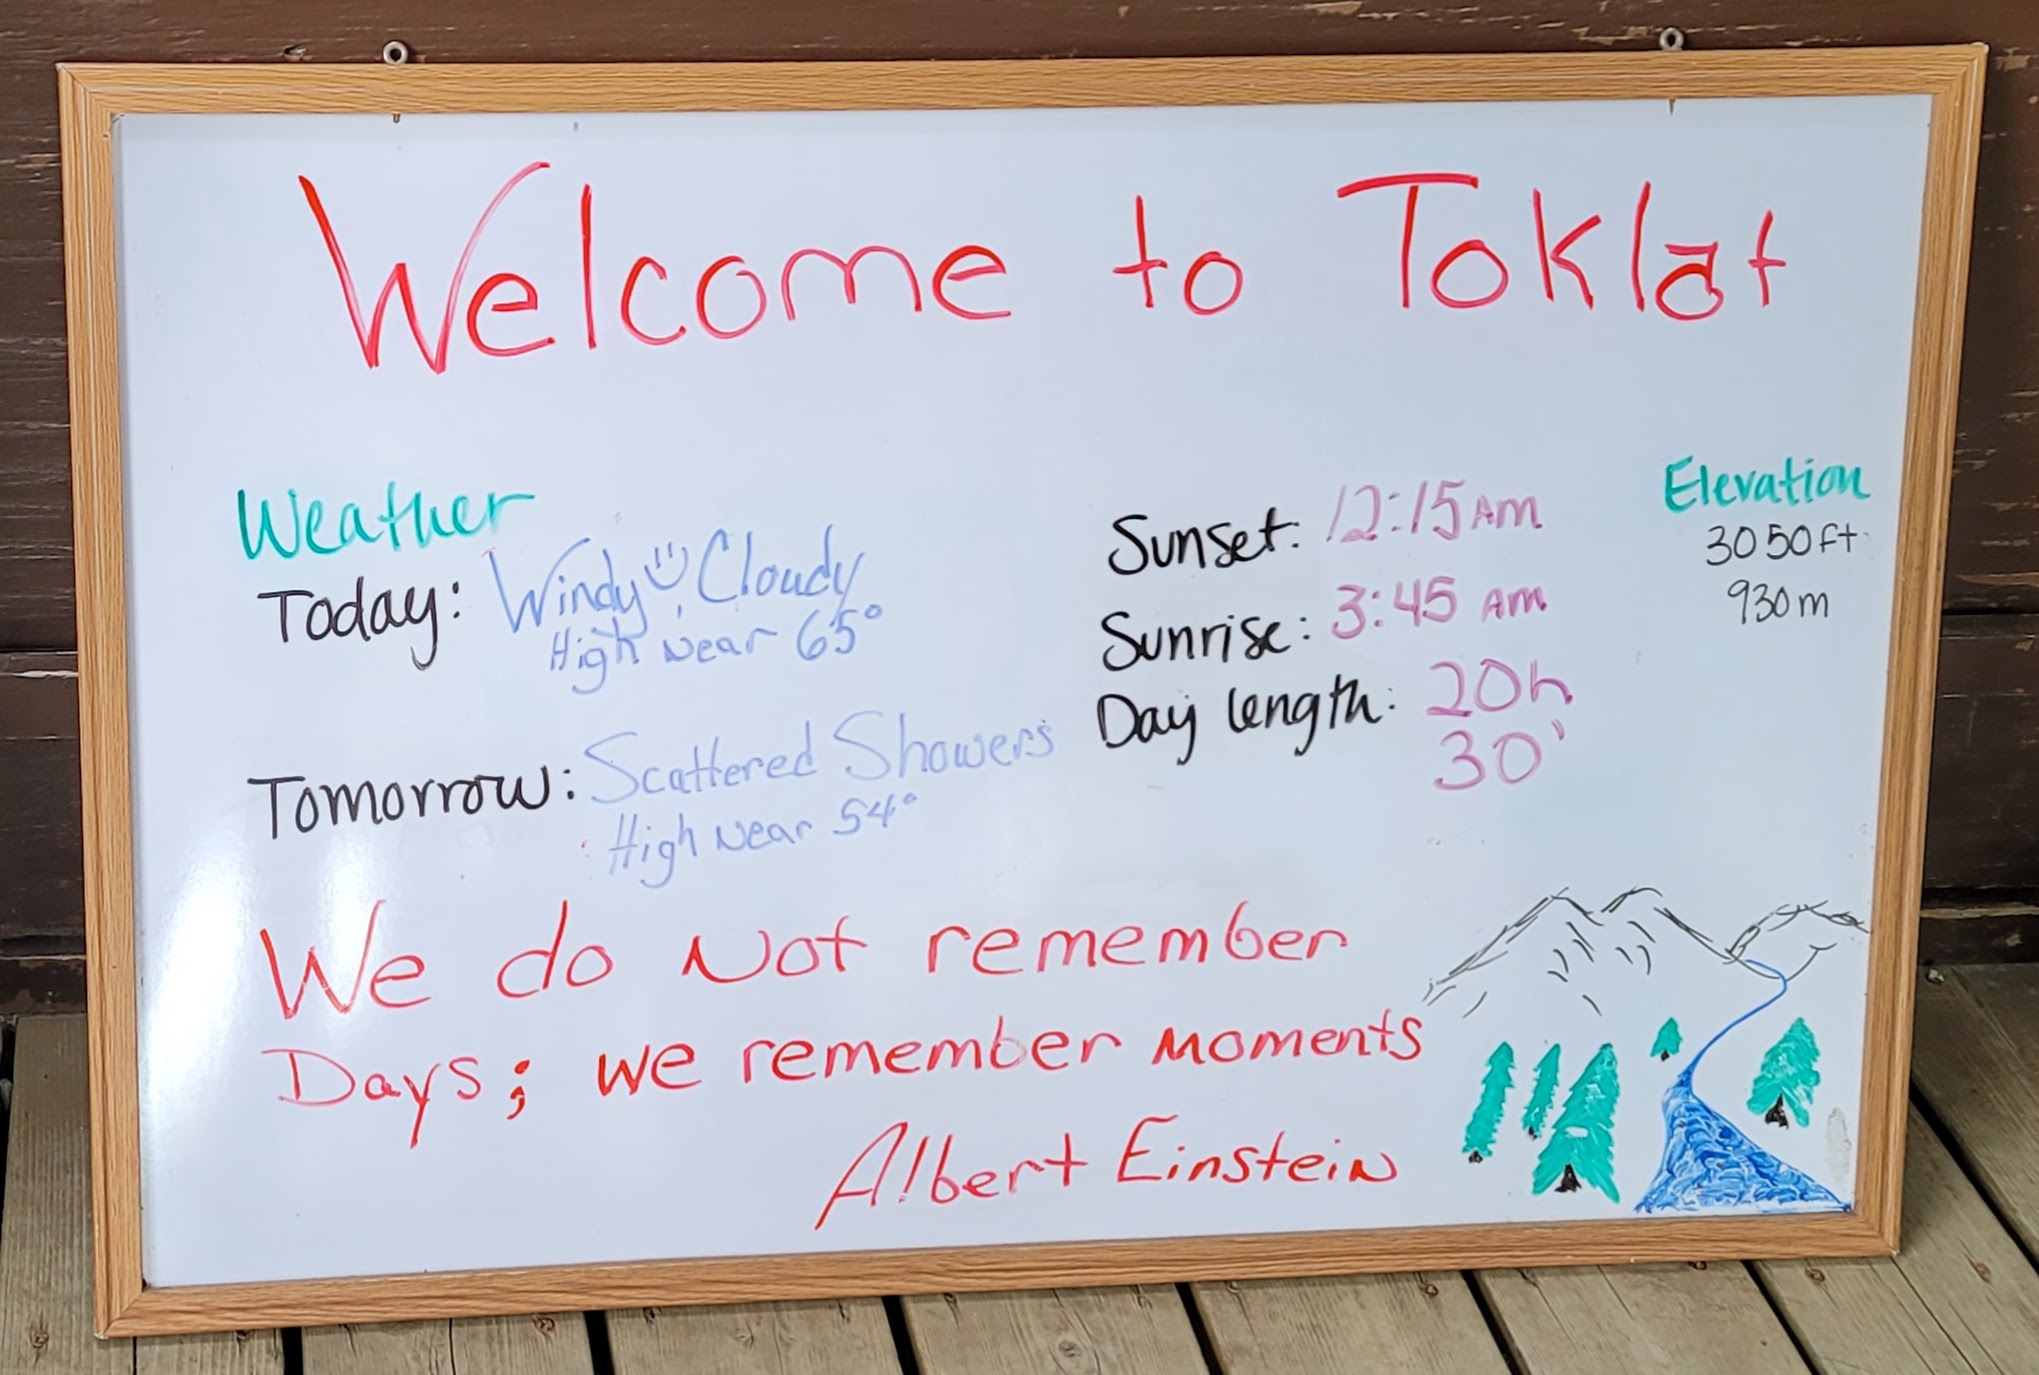 Welcome to Toklat
Weather
Today: Windy Cloudy
High Near 65°
Tomorrow: Scattered Showers
High Near 54°
Sunset: 12:15 AM
Sunrise: 3:45 AM
Day length: 20h
30'
Elevation
3050 ft.
930 m
We do Not remember
Days; we remember Moments
Albert Einstein